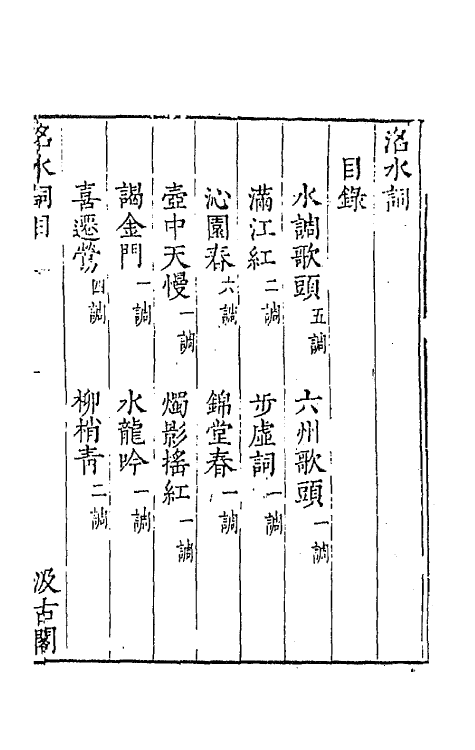 洺水詞
目錄
水調歌頭五調 六州歌頭一調
滿江紅二調 步虛詞一調
沁園春六調 錦堂春一調
壺中天慢一調 燭影搖紅一調
謁金門一調 水龍吟一調
喜遷鶯四調 柳梢青二調
洺水詞目 一 汲古閣